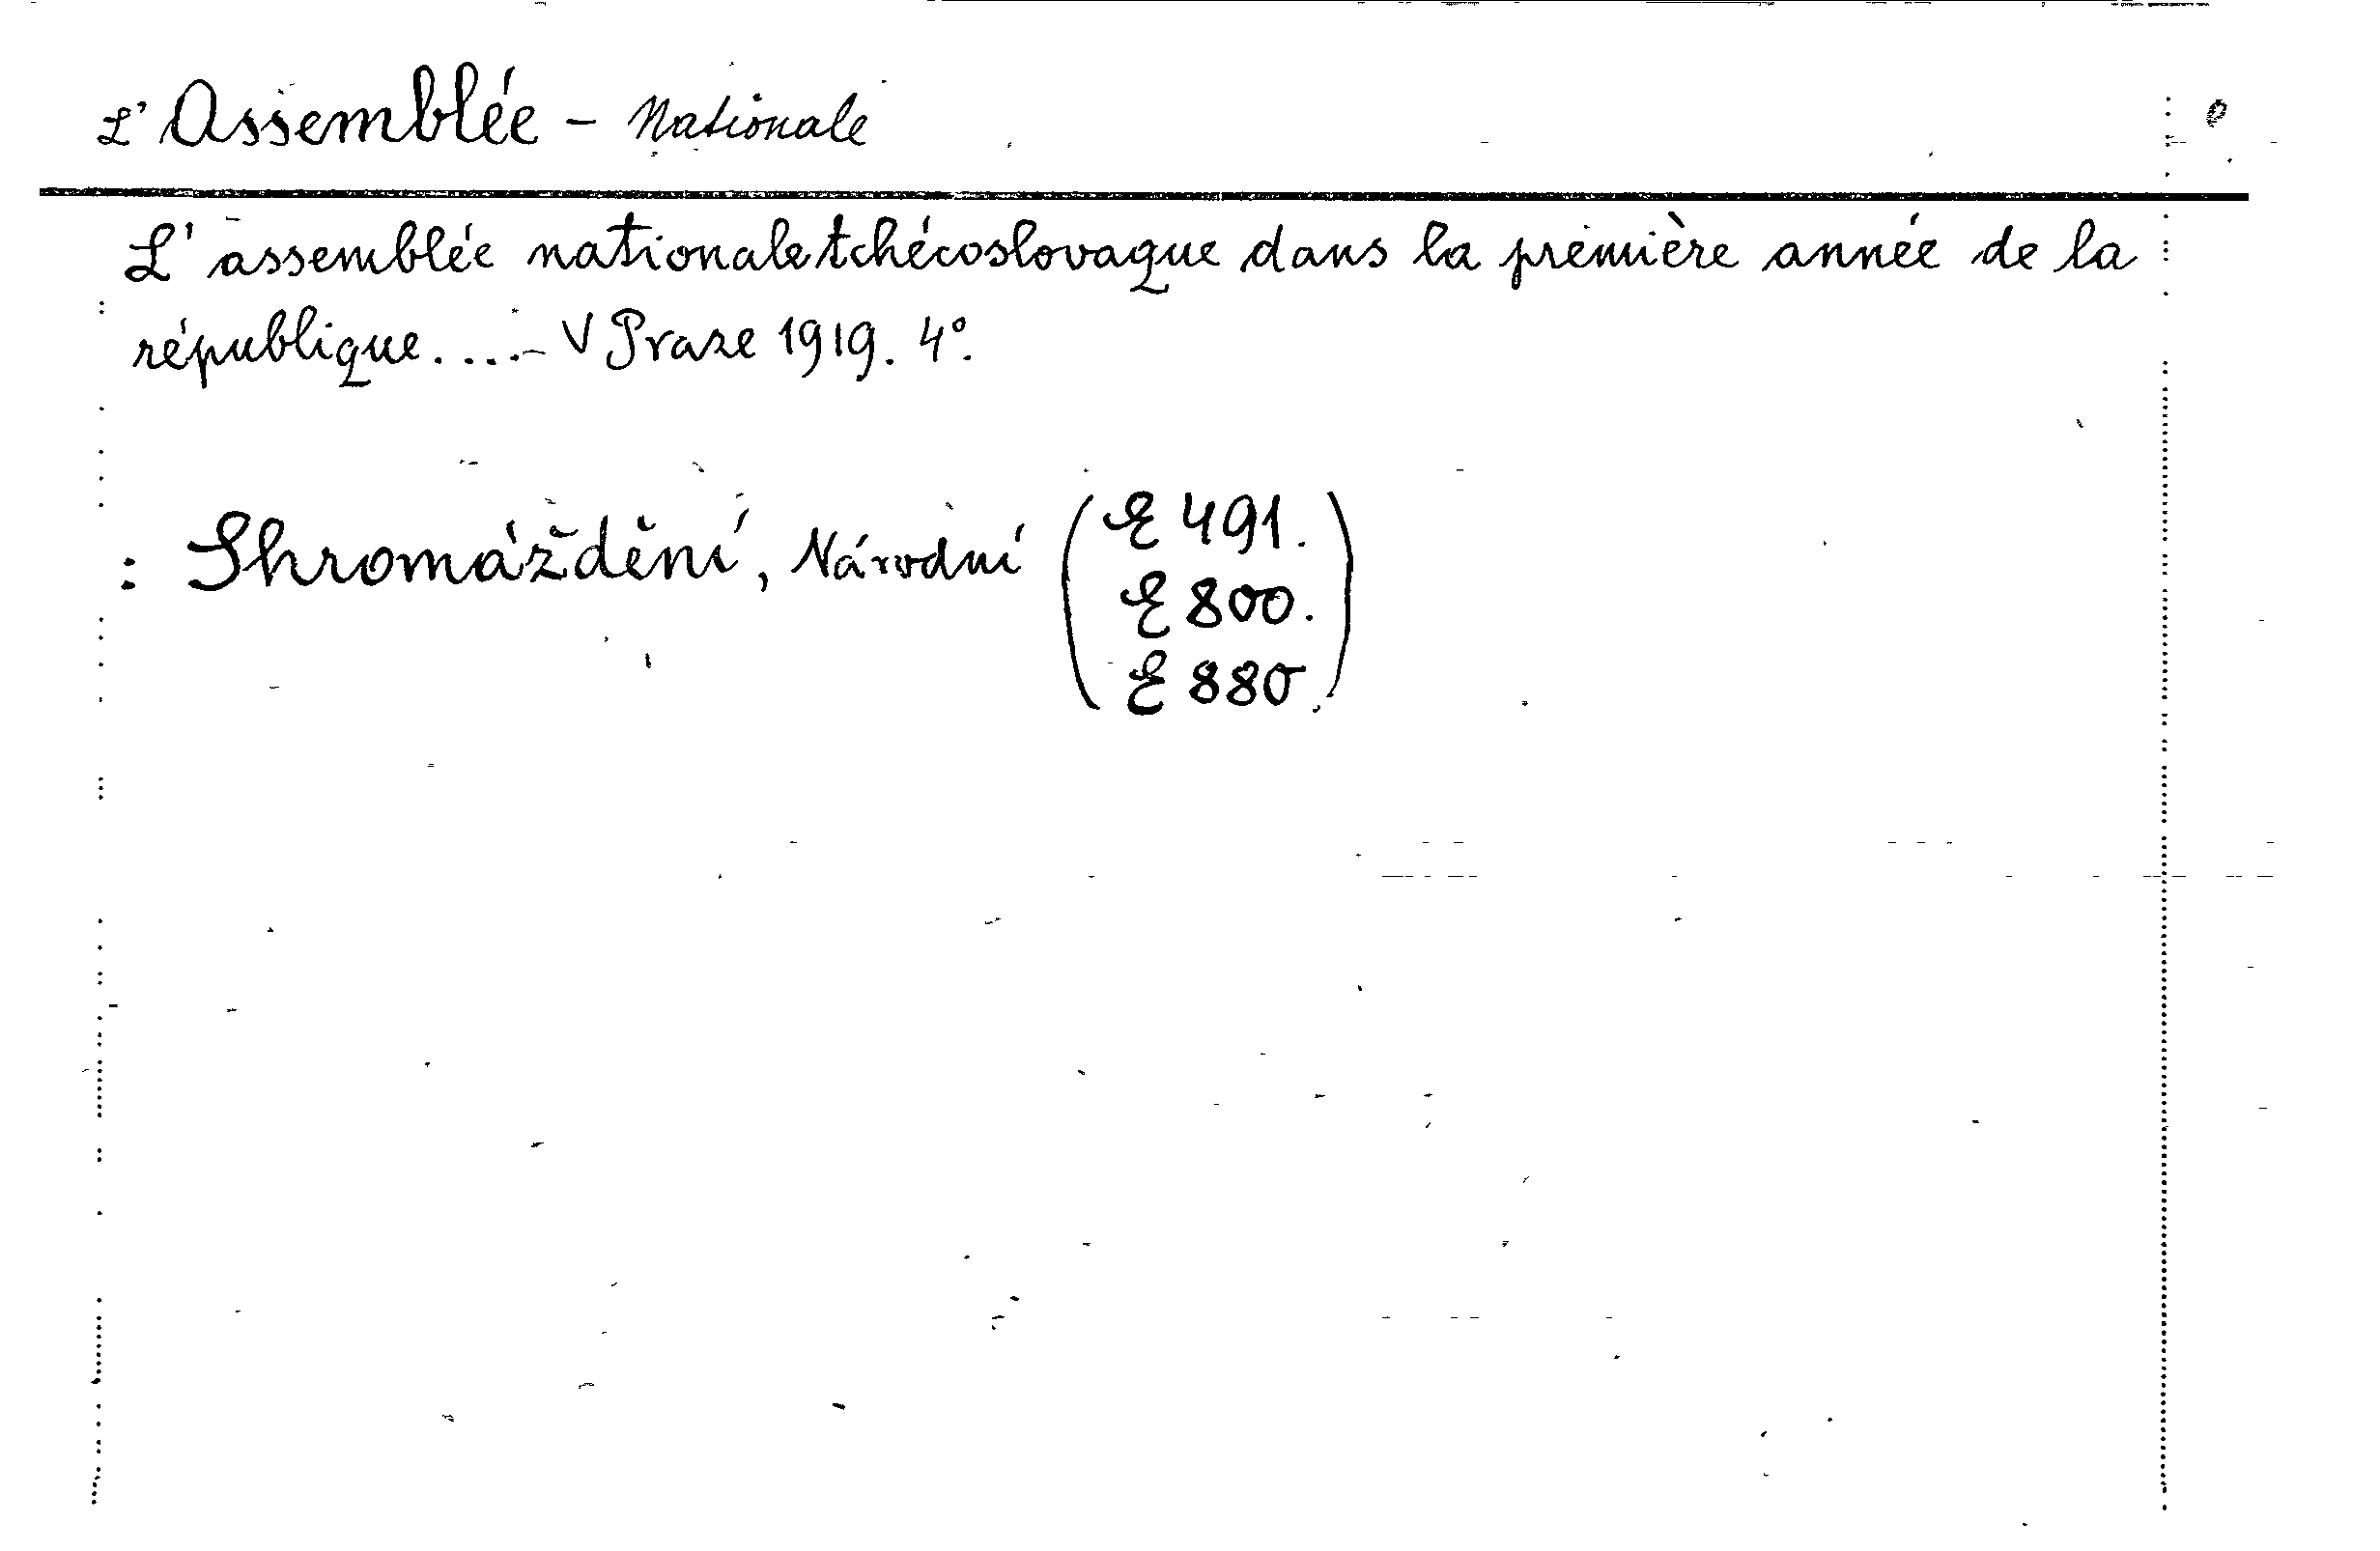 L' Assemblée - Nationale
L' assemblée nationale tchécoslovaque dans la première année de la
république....- V Praze 1919. 4°.
: Shromáždění, Národní (E 491.
E 800.
E 880.)